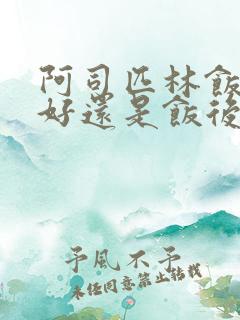 阿司匹林飯
好還是飯後
予風不予
未经同意禁止转载